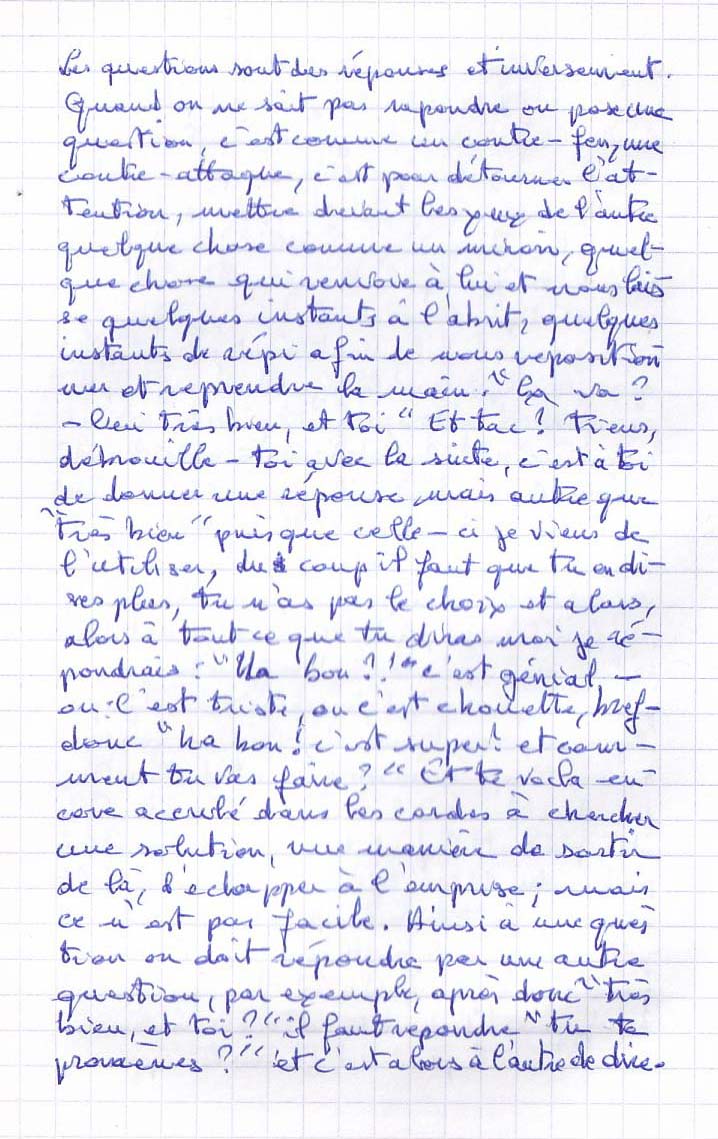 Les questions sont des réponses et inversement.
Quand on ne sait pas rapondre on pose une
question, c'est comme un contre-feu, une
contre-attaque, c'est pour détourner l'at-
tention, mettre devant les yeux de l'autre
quelque chose comme un miroir, quel-
que chose qui renvoie à lui et nous lais
se quelques instants à l'abrit, quelques
instants de répi afin de nous reposition
ner et reprendre la main. "Ça va ?
- Oui très bien, et toi" Et tac ! Tiens,
débrouille-toi avec la suite, c'est à toi
de donner une réponse mais autre que
"très bien" puisque celle-ci je viens de
l'utiliser, du coup il faut que tu en di-
ses plus, tu n'as pas le choix et alors,
alors à tout ce que tu diras moi je ré-
pondrais : "Ha bon ?!" c'est génial -
ou c'est triste, ou c'est chouette, bref-
donc "ha bon ! c'est super ! et com-
ment tu vas faire ?" Et te voila en-
core acculé dans les cordes à chercher
une solution, une manière de sortir
de là, d'echapper à l'emprise ; mais
ce n'est pas facile. Ainsi à une ques
tion on doit répondre par une autre
question, par exemple, après donc "très
bien, et toi ?" il faut repondre "tu te
promènes ?" et c'est alors à l'autre de dire.